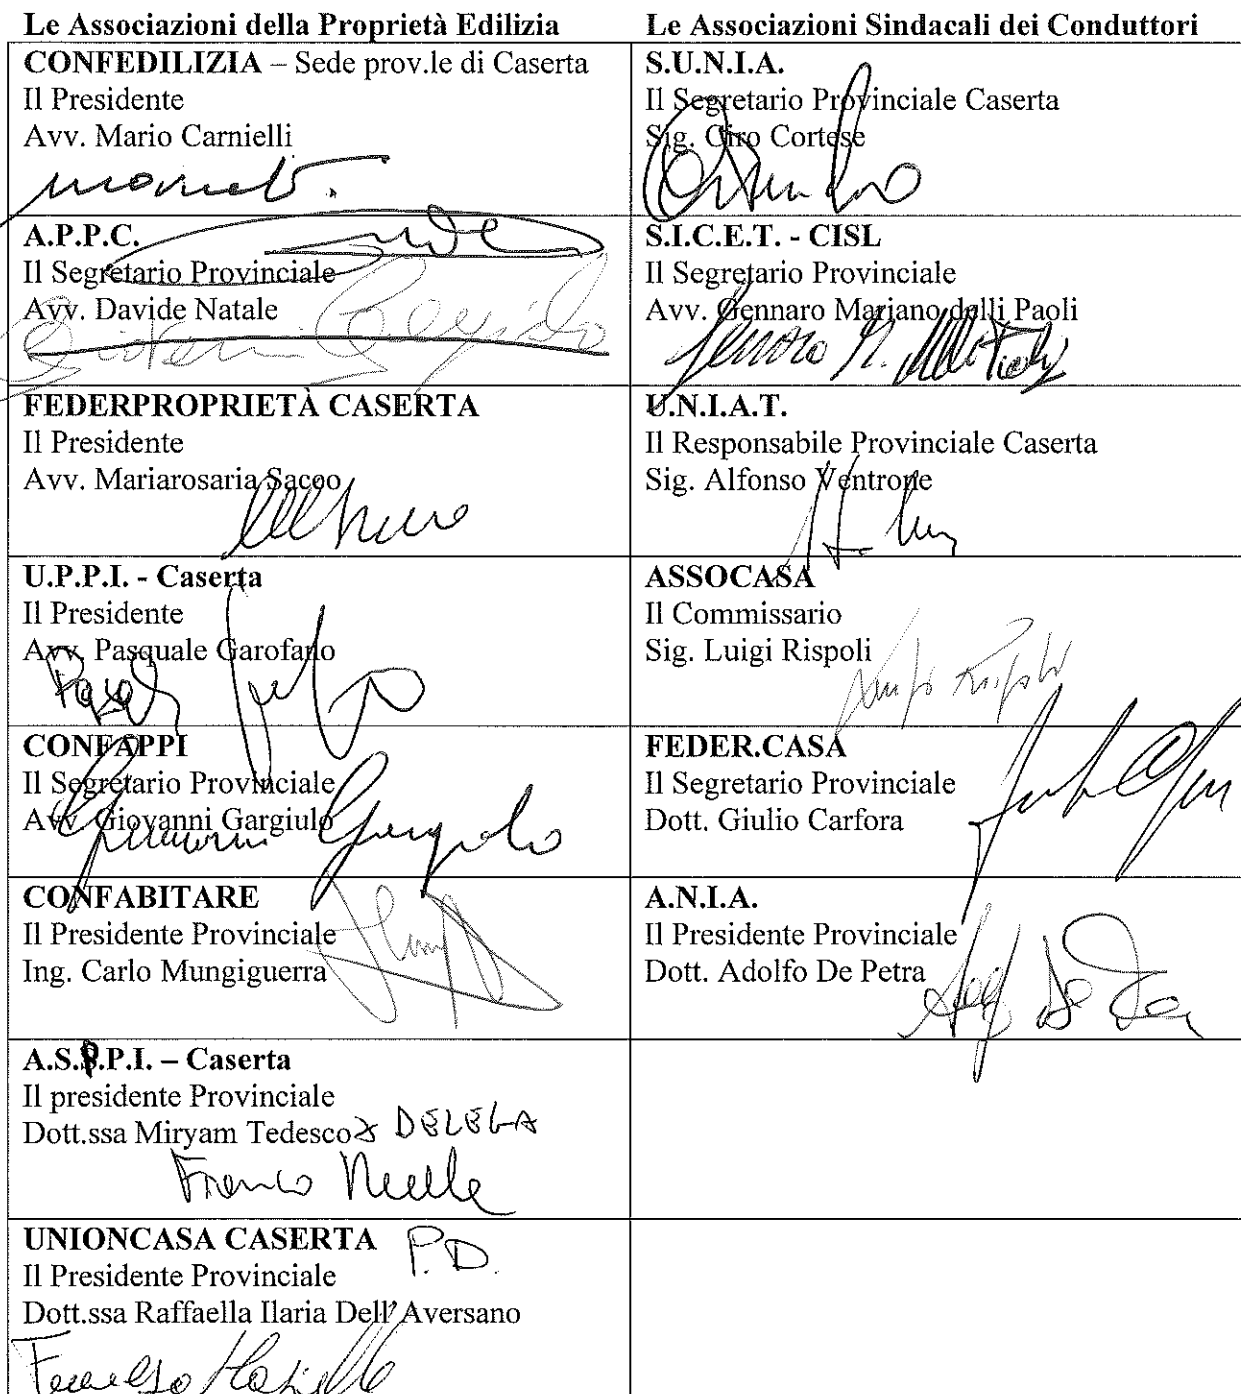 Le Associazioni della Proprietà Edilizia
Le Associazioni Sindacali dei Conduttori
CONFEDILIZIA – Sede prov.le di Caserta
Il Presidente
Avv. Mario Carnielli
S.U.N.I.A.
Il Segretario Provinciale Caserta
Sig. Ciro Cortese
A.P.P.C.
Il Segretario Provinciale
Avv. Davide Natale
S.I.C.E.T. - CISL
Il Segretario Provinciale
Avv. Gennaro Mariano delli Paoli
FEDERPROPRIETÀ CASERTA
Il Presidente
Avv. Mariarosaria Sacco
U.N.I.A.T.
Il Responsabile Provinciale Caserta
Sig. Alfonso Ventrone
U.P.P.I. - Caserta
Il Presidente
Avv. Pasquale Garofano
ASSOCASA
Il Commissario
Sig. Luigi Rispoli
Luigi Rispoli
CONFAPPI
Il Segretario Provinciale
Avv. Giovanni Gargiulo
Giovanni Gargiulo
FEDER.CASA
Il Segretario Provinciale
Dott. Giulio Carfora
CONFABITARE
Il Presidente Provinciale
Ing. Carlo Mungiguerra
A.N.I.A.
Il Presidente Provinciale
Dott. Adolfo De Petra
A.S.P.P.I. – Caserta
Il presidente Provinciale
Dott.ssa Miryam Tedesco x DELEGA
Franco
UNIONCASA CASERTA P.D.
Il Presidente Provinciale
Dott.ssa Raffaella Ilaria Dell'Aversano